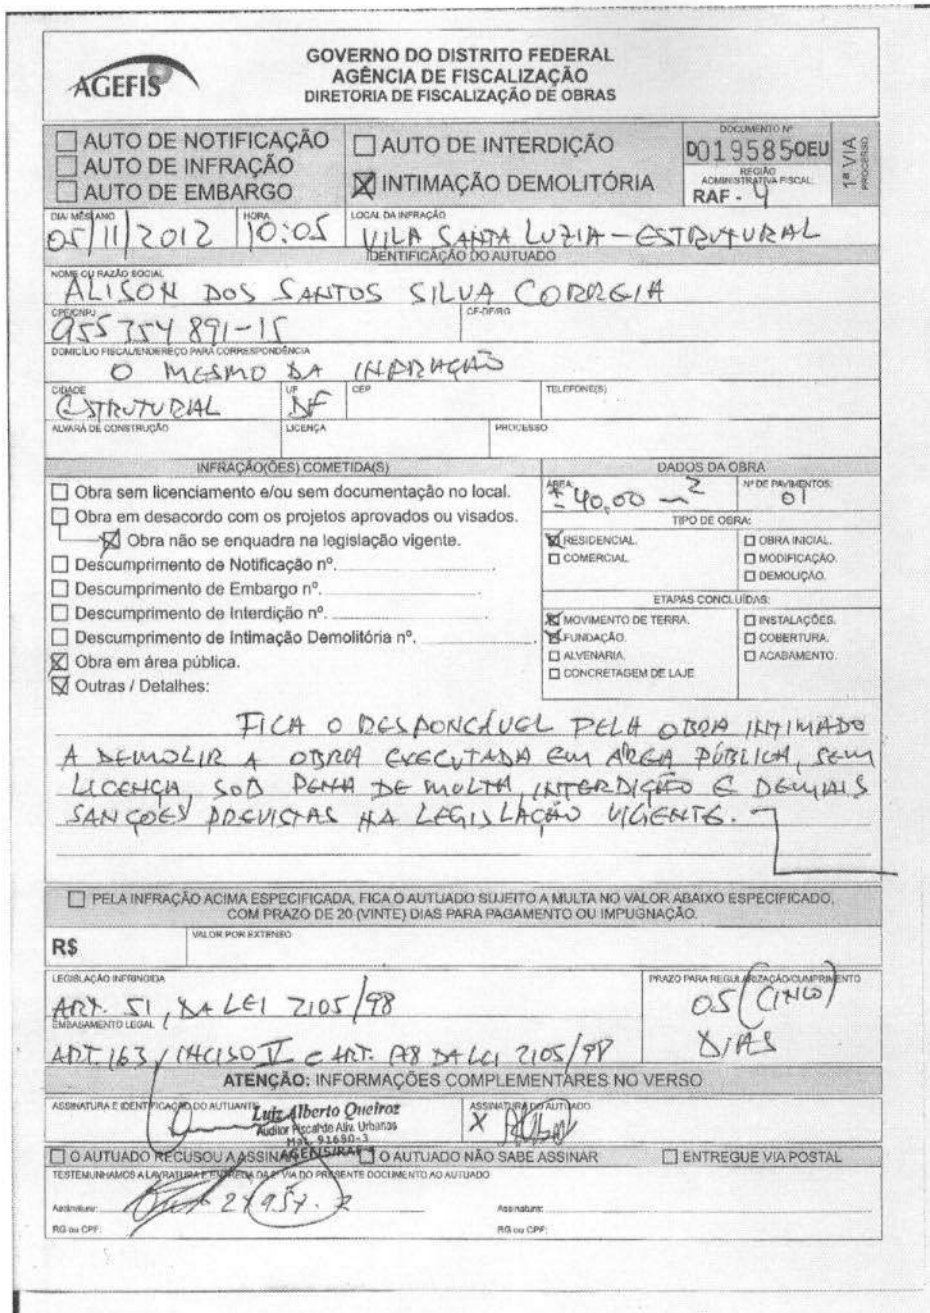 AGEFIS
GOVERNO DO DISTRITO FEDERAL
AGÊNCIA DE FISCALIZAÇÃO
DIRETORIA DE FISCALIZAÇÃO DE OBRAS
AUTO DE NOTIFICAÇÃO
AUTO DE INFRAÇÃO
AUTO DE EMBARGO
AUTO DE INTERDIÇÃO
INTIMAÇÃO DEMOLITÓRIA
DOCUMENTO Nº
D019585OEU
REGIÃO
ADMINISTRATIVA FISCAL:
RAF - 4
1ª VIA
PROCESSO
DIA/ MÊS/ ANO
05/11/2012
HORA
10:05
LOCAL DA INFRAÇÃO
VILA SANTA LUZIA - ESTRUTURAL
IDENTIFICAÇÃO DO AUTUADO
NOME OU RAZÃO SOCIAL
ALISON DOS SANTOS SILVA CORREGIA
CPF/CNPJ
955754891-15
CF-DF/RG
DOMICÍLIO FISCAL/ENDEREÇO PARA CORRESPONDÊNCIA
O MESMO DA INFRAÇÃO
CIDADE
ESTRUTURAL
UF
DF
CEP
TELEFONE(S)
ALVARÁ DE CONSTRUÇÃO
LICENÇA
PROCESSO
INFRAÇÃO(ÕES) COMETIDA(S)
Obra sem licenciamento e/ou sem documentação no local.
Obra em desacordo com os projetos aprovados ou visados.
Obra não se enquadra na legislação vigente.
Descumprimento de Notificação nº.
Descumprimento de Embargo nº.
Descumprimento de Interdição nº.
Descumprimento de Intimação Demolitória nº.
Obra em área pública.
Outras / Detalhes:
DADOS DA OBRA
ÁREA:
± 40,00 m²
Nº DE PAVIMENTOS:
01
TIPO DE OBRA:
RESIDENCIAL.
COMERCIAL.
OBRA INICIAL.
MODIFICAÇÃO.
DEMOLIÇÃO.
ETAPAS CONCLUÍDAS:
MOVIMENTO DE TERRA.
FUNDAÇÃO.
ALVENARIA.
CONCRETAGEM DE LAJE
INSTALAÇÕES.
COBERTURA.
ACABAMENTO.
FICA O RESPONCÁVEL PELA OBRA INTIMADO
A DEMOLIR A OBRA EXECUTADA EM ÁREA PÚBLICA, SEM
LICENÇA, SOB PENA DE MULTA, INTERDIÇÃO E DEMAIS
SANÇOES PREVISTAS NA LEGISLAÇÃO VIGENTE.
PELA INFRAÇÃO ACIMA ESPECIFICADA, FICA O AUTUADO SUJEITO A MULTA NO VALOR ABAIXO ESPECIFICADO,
COM PRAZO DE 20 (VINTE) DIAS PARA PAGAMENTO OU IMPUGNAÇÃO.
R$
VALOR POR EXTENSO
LEGISLAÇÃO INFRINGIDA
ART. 51, DA LEI 2105/98
EMBASAMENTO LEGAL
ART. 163, INCISO V e ART. 178 DA LEI 2105/98
PRAZO PARA REGULARIZAÇÃO/CUMPRIMENTO
05 (CINCO)
DIAS
ATENÇÃO: INFORMAÇÕES COMPLEMENTARES NO VERSO
ASSINATURA E IDENTIFICAÇÃO DO AUTUANTE
Luiz Alberto Queiroz
Auditor Fiscal de Ativ. Urbanas
Mat. 91690-3
ASSINATURA DO AUTUADO
X
O AUTUADO RECUSOU A ASSINAR
O AUTUADO NÃO SABE ASSINAR
ENTREGUE VIA POSTAL
TESTEMUNHAMOS A LAVRATURA E ENTREGA DA 2ª VIA DO PRESENTE DOCUMENTO AO AUTUADO
Assinatura:
Assinatura:
RG ou CPF:
RG ou CPF: